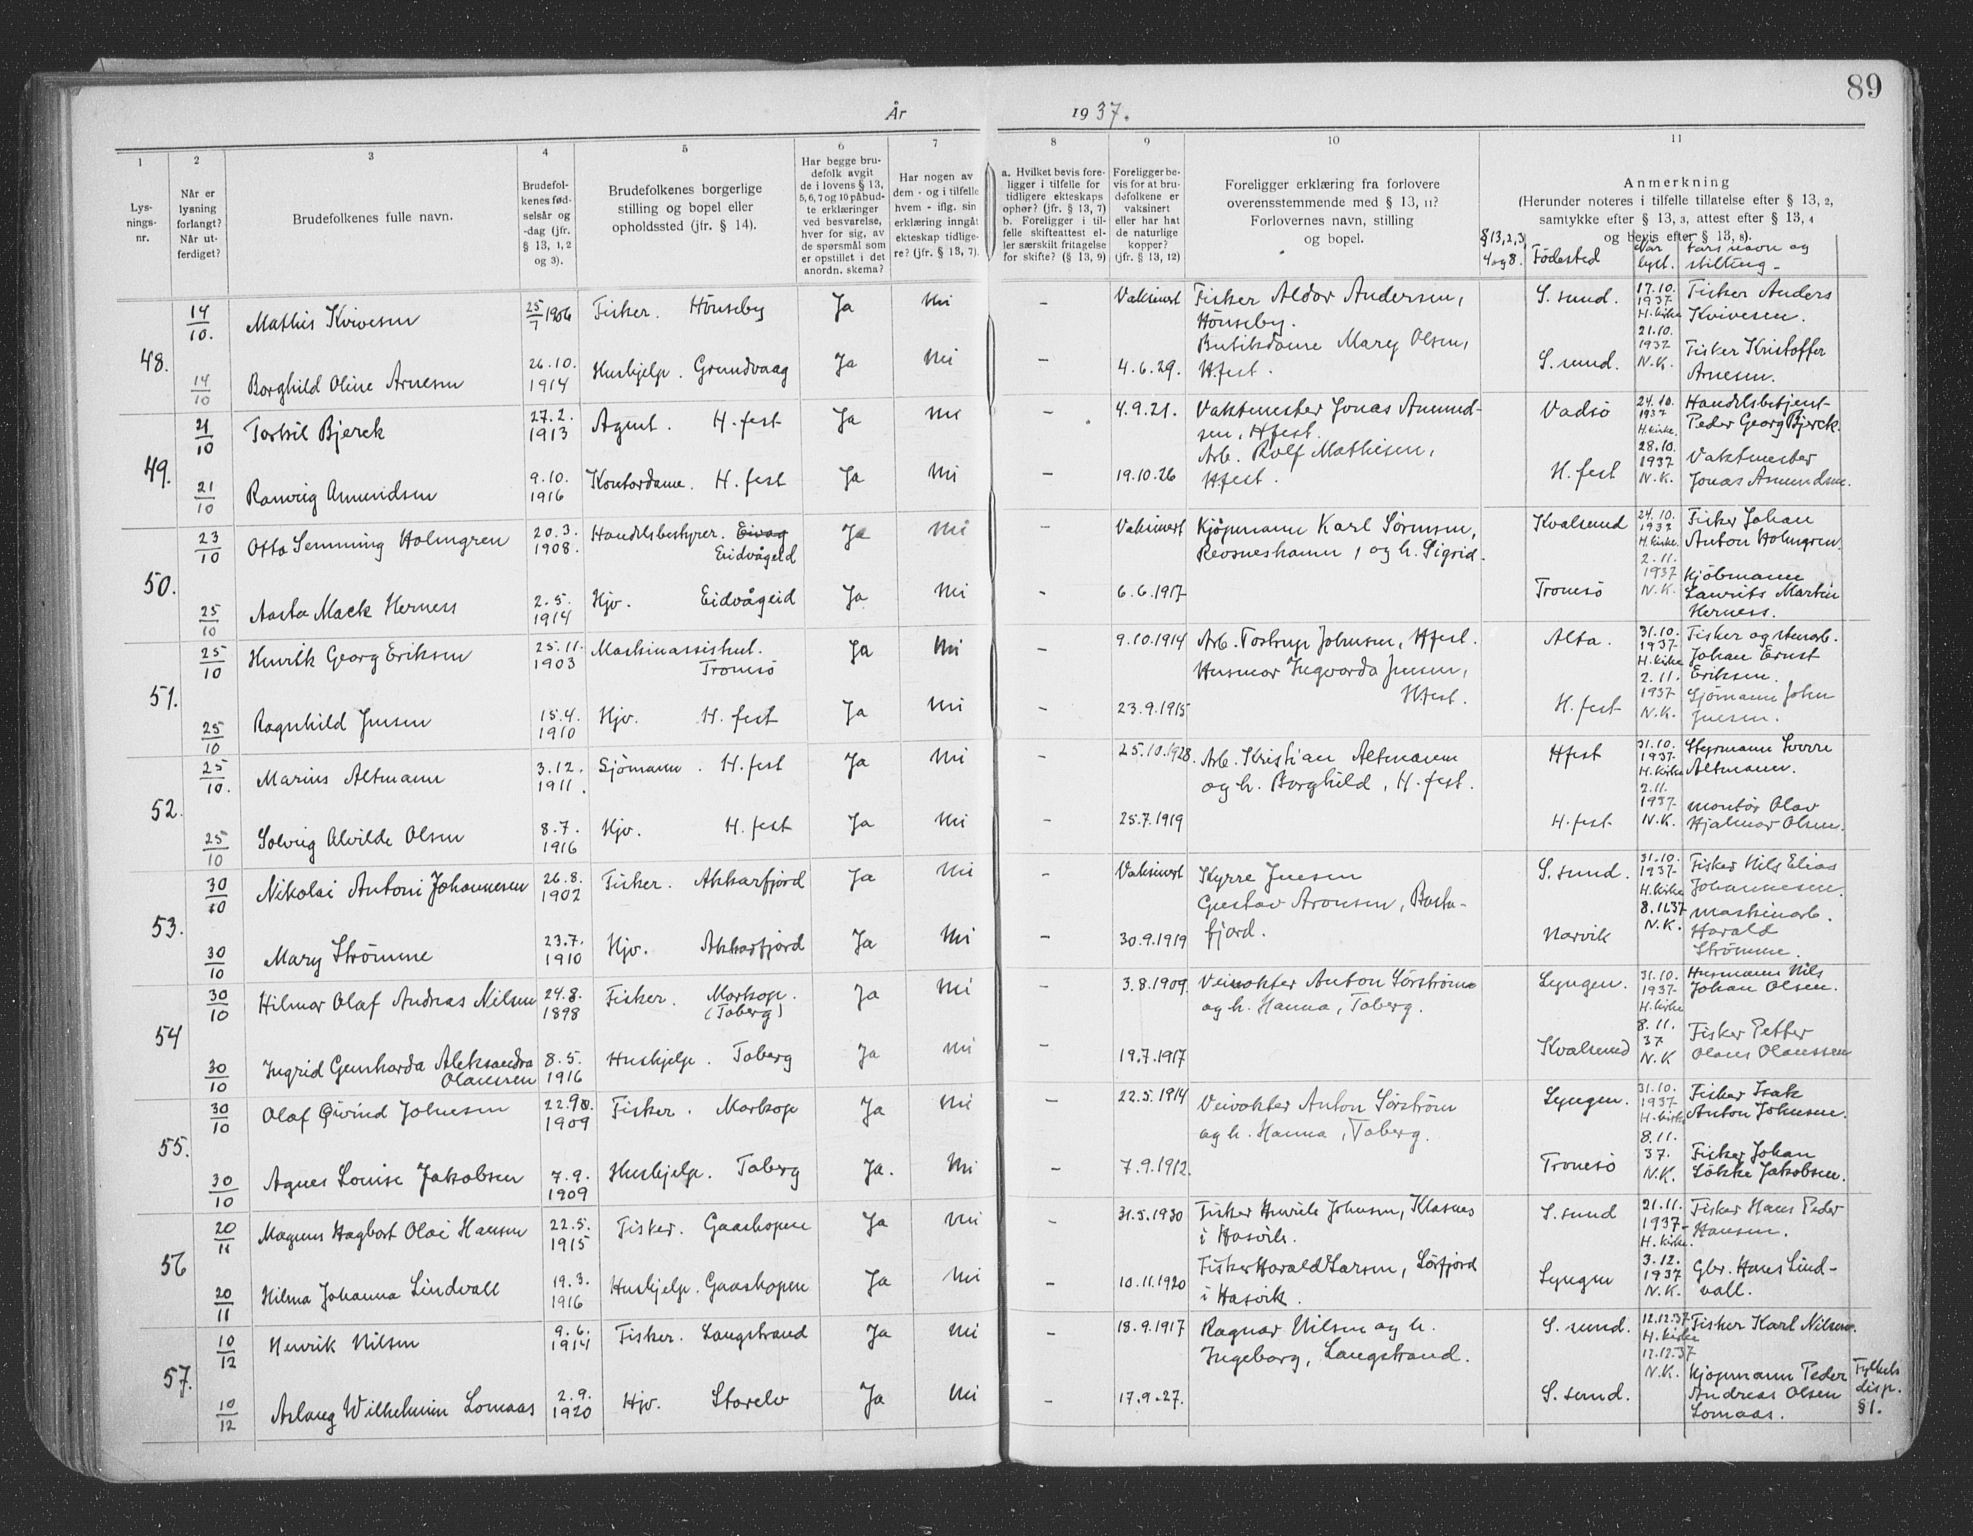 89
År 1937.
1 2 3 4 5 6 7 8 9 10 11
Lysningsnr.
Når er lysning forlangt? Når utferdiget?
Brudefolkenes fulle navn.
Brudefolkenes fødselsår og -dag (jfr. § 13, 1, 2 og 3).
Brudefolkenes borgerlige stilling og bopel eller opholdssted (jfr. § 14).
Har begge brudefolk avgit de i lovens § 13, 5, 6, 7 og 10 påbudte erklæringer ved besvarelse, hver for sig, av de spørsmål som er opstillet i det anordn. skema?
Har nogen av dem - og i tilfelle hvem - iflg. sin erklæring inngått ekteskap tidligere? (jfr. § 13, 7).
a. Hvilket bevis foreligger i tilfelle for tidligere ekteskaps ophør? (jfr. § 13, 7)
b. Foreligger i tilfelle skifteattest eller særskilt fritagelse for skifte? (§ 13, 9)
Foreligger bevis for at brudefolkene er vaksinert eller har hat de naturlige kopper? (jfr. § 13, 12)
Foreligger erklæring fra forlovere overensstemmende med § 13, 11? Forlovernes navn, stilling og bopel.
Anmerkning
(Herunder noteres i tilfelle tillatelse efter § 13, 2, samtykke efter § 13, 3, attest efter § 13, 4 og bevis efter § 13, 8).
§ 13,2,3, 4 og 8. Fødested Når lyst. Fars navn og stilling
48.
14/10. Mathis Kvivesen 25/7 1906 Fisker. Hönseby Ja Nei – Vaksinert Fisker Aldor Andersen, Hönseby. S. sund. 17.10. 1937 H. kirke Fisker Anders Kvivesen.
14/10 Borghild Oline Arnesen 26.10. 1914 Hushjelp. Grundvaag Ja Nei – 4.6.29. Butikdame Mary Olsen, Hfest. S. sund. 21.10. 1937 N.K. Fisker Kristoffer Arnesen.
49.
21/10 Torkil Bjerck 27.2. 1913 Agent. H. fest Ja Nei – 4.9.21. Vaktmester Jonas Amundsen, Hfest. Vadsö 24.10. 1937 H. kirke. Handelsbetjent Peder Georg Bjerck.
21/10 Ranveig Amundsen 9.10. 1916 Kontordame. H. fest Ja Nei – 19.10.26 Arb. Rolf Mathisen, Hfest. H. fest 28.10. 1937 N.K. Vaktmester Jonas Amundsen.
50.
23/10 Otto Semming Holmgren 20.3. 1908. Handelsbestyrer. Eivag Eidvågeid Ja Nei Vaksinert Kjøpmann Karl Sörensen, Revsneshamn, og h. Sigrid. Kvalsund 24.10. 1937 H. kirke. Fisker Johan Anton Holmgren.
25/10 Aasta Mack Herness 2.5. 1914 Hjv. Eidvågeid Ja Nei - 6.6.1917 Tromsö 2.11. 1937 N.K. Kjöbmann Laurits Martin Herness.
51.
25/10 Henrik Georg Eriksen 25.11. 1903 Maskinassistent. Tromsö Ja Nei – 9.10.1914 Arb. Tostrup Johnsen, Hfest. Alta. 31.10. 1937. H. kirke Fisker og stenarb. Johan Ernst Eriksen.
25/10 Ragnhild Jensen 15.4. 1910 Hjv. H. fest Ja Nei – 23.9.1915 Husmor Ingvarda Jensen, Hfest. H. fest 2.11. 1937 N.K. Sjömann John Jensen.
52.
25/10. Marius Altmann 3.12. 1911. Sjömann. H. fest Ja Nei – 25.10.1928. Arb. Kristian Altmann og h. Borghild, H. fest. Hfest 31.10. 1937. H. kirke Styrmann Sverre Altmann.
25/10 Solveig Alvilde Olsen 8.7. 1916 Hjv. H. fest Ja Nei – 25.7.1919 H. fest 2.11. 1937. N.K. Montör Olav Hjalmar Olsen.
53.
30/10 Nikolai Antoni Johannesen 26.8. 1902 Fisker. Akkarfjord Ja Nei – Vaksinert Styrre Jensen S. sund. 31.10. 1937. H. kirke Fisker Nils Elias Johannesen.
30/10 Mary Strömme 23.7. 1910 Hjv. Akkarfjord Ja Nei – 30.9.1919 Gustav Aronsen, Bastafjord. Narvik 8.11.37 N.K. Maskinarb. Harald Strömme.
54
30/10 Hilmar Olaf Andreas Nilsen 24.8. 1898 Fisker. Markop. (Taberg) Ja Nei – 3.8.1909. Veivokter Anton Sörström og h. Hanna, Taberg. Lyngen. 31.10. 1937. H. kirke Husmann Nils Johan Olsen.
30/10 Ingrid Genharda Aleksandra Olaussen 8.5. 1916 Hushjelp. Taberg Ja Nei – 19.7.1917 Kvalsund 8.11. 37 N.K Fisker Petter Olaus Olaussen
55.
30/10 Olaf Øivind Johnsen 22.90. 1909 Fisker. Markop Ja Nei – 22.5.1914 Veivokter Anton Sörström og h. Hanna, Taberg. Lyngen. 31.10. 1937 H. kirke Fisker Isak Anton Johnsen.
30/10 Agnes Louise Jakobsen 7.9. 1909 Hushjelp. Taberg Ja. Nei – 7.9.1912. Tromsö 8.11. 37. N.K. Fisker Johan Lökke Jakobsen.
56
20/11 Magnus Hagbart Olai Hansen 22.5. 1915 Fisker. Gaashopen Ja Nei – 31.5.1930 Fisker Henrik Johnsen, Klasnes i Hasvik. S. sund 21.11. 1937- H. kirke. Fisker Hans Peder Hansen.
20/11 Hilma Johanna Lindvall 19.3. 1916 Hushjelp. Gaashopen Ja Nei – 10.11.1920 Fisker Harald Larsen, Sörfjord i Hasvik. Lyngen 3.12. 1937 N.K. Gbr. Hans Lindvall.
57.
10/12 Henrik Nilsen 9.6. 1914 Fisker. Langstrand Ja Nei – 18.9.1917 Ragnar Nilsen og h. Ingeborg, Langstrand. S. sund. 12.12.37 H. kirke Fisker Karl Nilsen.
10/12 Aslaug Wilhelmine Lomaas 2.9. 1920 Hjv. Storelv Ja Nei – 17.9.27. S. sund. 12.12.37 N.K. Kjøpmann Peder Andreas Olsen Lomaas. Fylkets disp. §1.